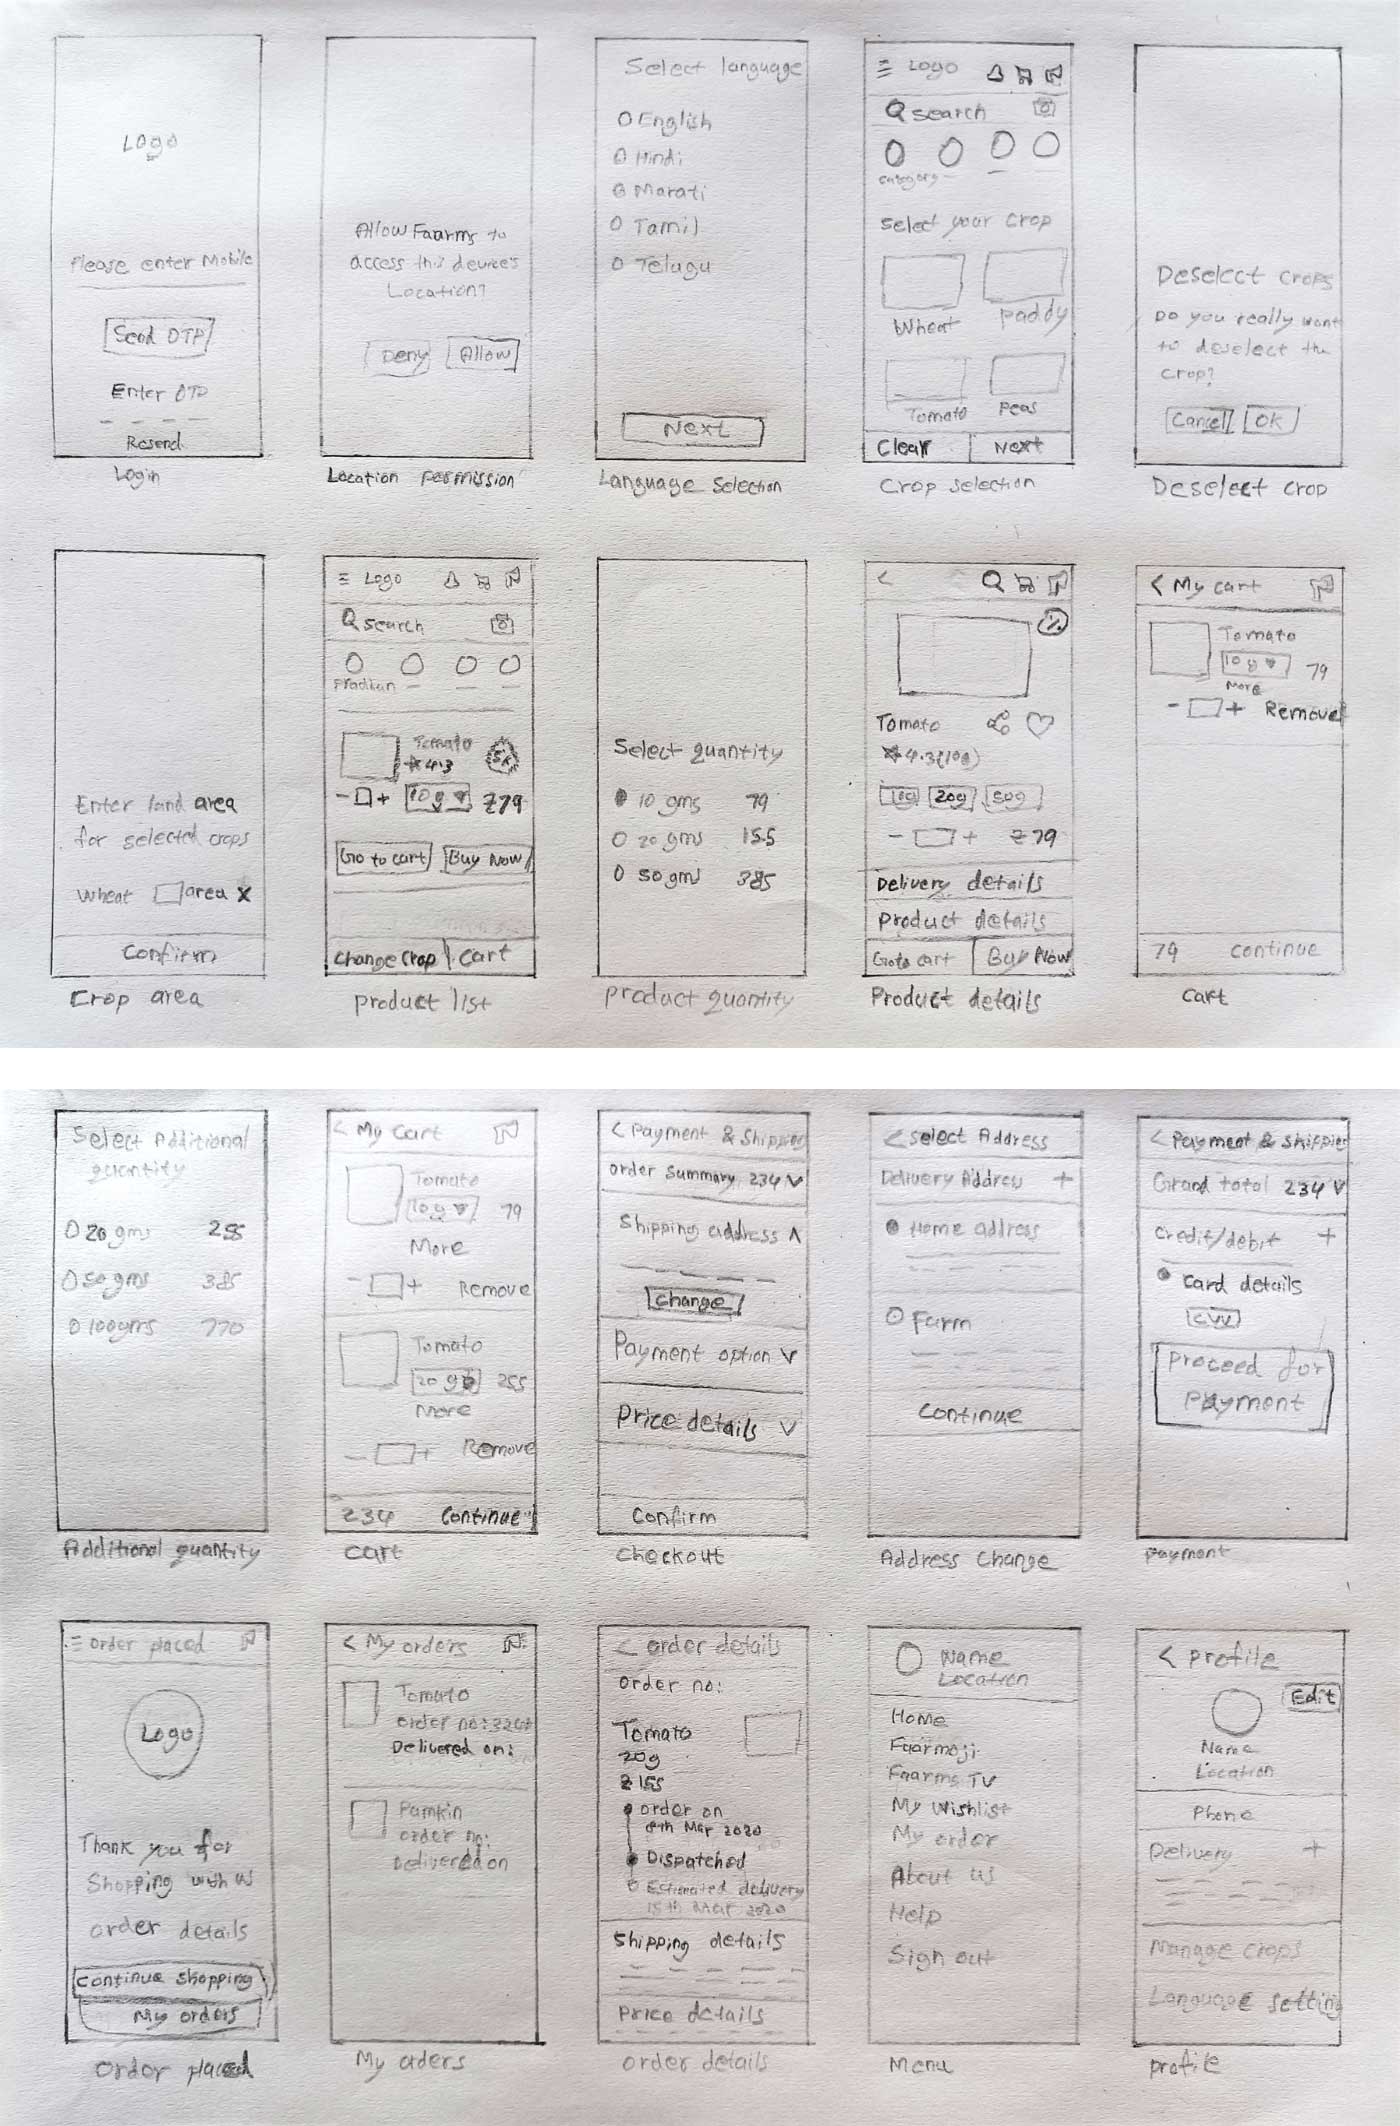 Logo
Please enter Mobile
Send OTP
Enter OTP
Resend
Login
Allow Faarms to
access this device's
Location?
Deny Allow
Location Permission
Select language
English
Hindi
Marati
Tamil
Telugu
Next
Language Selection
Logo
search
category
select your crop
Wheat paddy
Tomato Peas
Clear Next
Crop selection
Deselect crops
Do you really want
to deselect the
crop?
Cancel OK
Deselect crop
Enter land area
for selected crops
Wheat area X
Confirm
Crop area
Logo
search
Tomato
4.3 5%
- + 10g ₹79
Go to cart Buy Now
Change Crop Cart
product list
Select quantity
10 gms 79
20 gms 155
50 gms 385
product quantity
<
%
Tomato
4.3(100)
10g 20g 50g
- + ₹79
Delivery details
Product details
Goto cart Buy Now
Product details
< My cart
Tomato
10g 79
More
- + Remove
79 continue
cart
Select Additional
quantity
20 gms 255
50 gms 385
100gms 770
Additional quantity
< My Cart
Tomato
10g 79
More
- + Remove
Tomato
20g 255
More
- + Remove
234 Continue
cart
< Payment & Shippin
order summary 234 V
Shipping address ʌ
Change
Payment option V
Price details V
Confirm
checkout
< select Address
Delivery Address +
Home address
Farm
Continue
Address change
< Payment & shippin
Grand total 234 V
Credit/debit +
card details
CVV
Proceed for
Payment
payment
order placed
Logo
Thank you for
Shopping with us
order details
Continue shopping
My orders
order placed
< My orders
Tomato
order no:
Delivered on:
Pamkin
order no:
Delivered on
My oders
< order details
order no:
Tomato
20g
₹155
order on
8th Mar 2020
Dispatched
Estimated delivery
15th Mar 2020
Shipping details
Price details
order details
Name
Location
Home
Faarmoji
Faarms TV
My Wishlist
My order
About us
Help
Sign out
Menu
< Profile
Edit
Name
Location
Phone
Delivery +
Manage crops
Language setting
profile